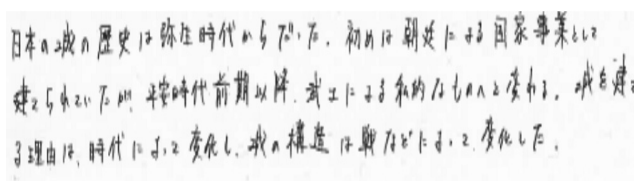 日本の城の歴史は弥生時代からだった。初めは朝廷による国家事業として
建てられていたが、平安時代前期以降、武士による私的なものへと変わる。城を建て
る理由は、時代によって変化し、城の構造は戦などによって変化した。